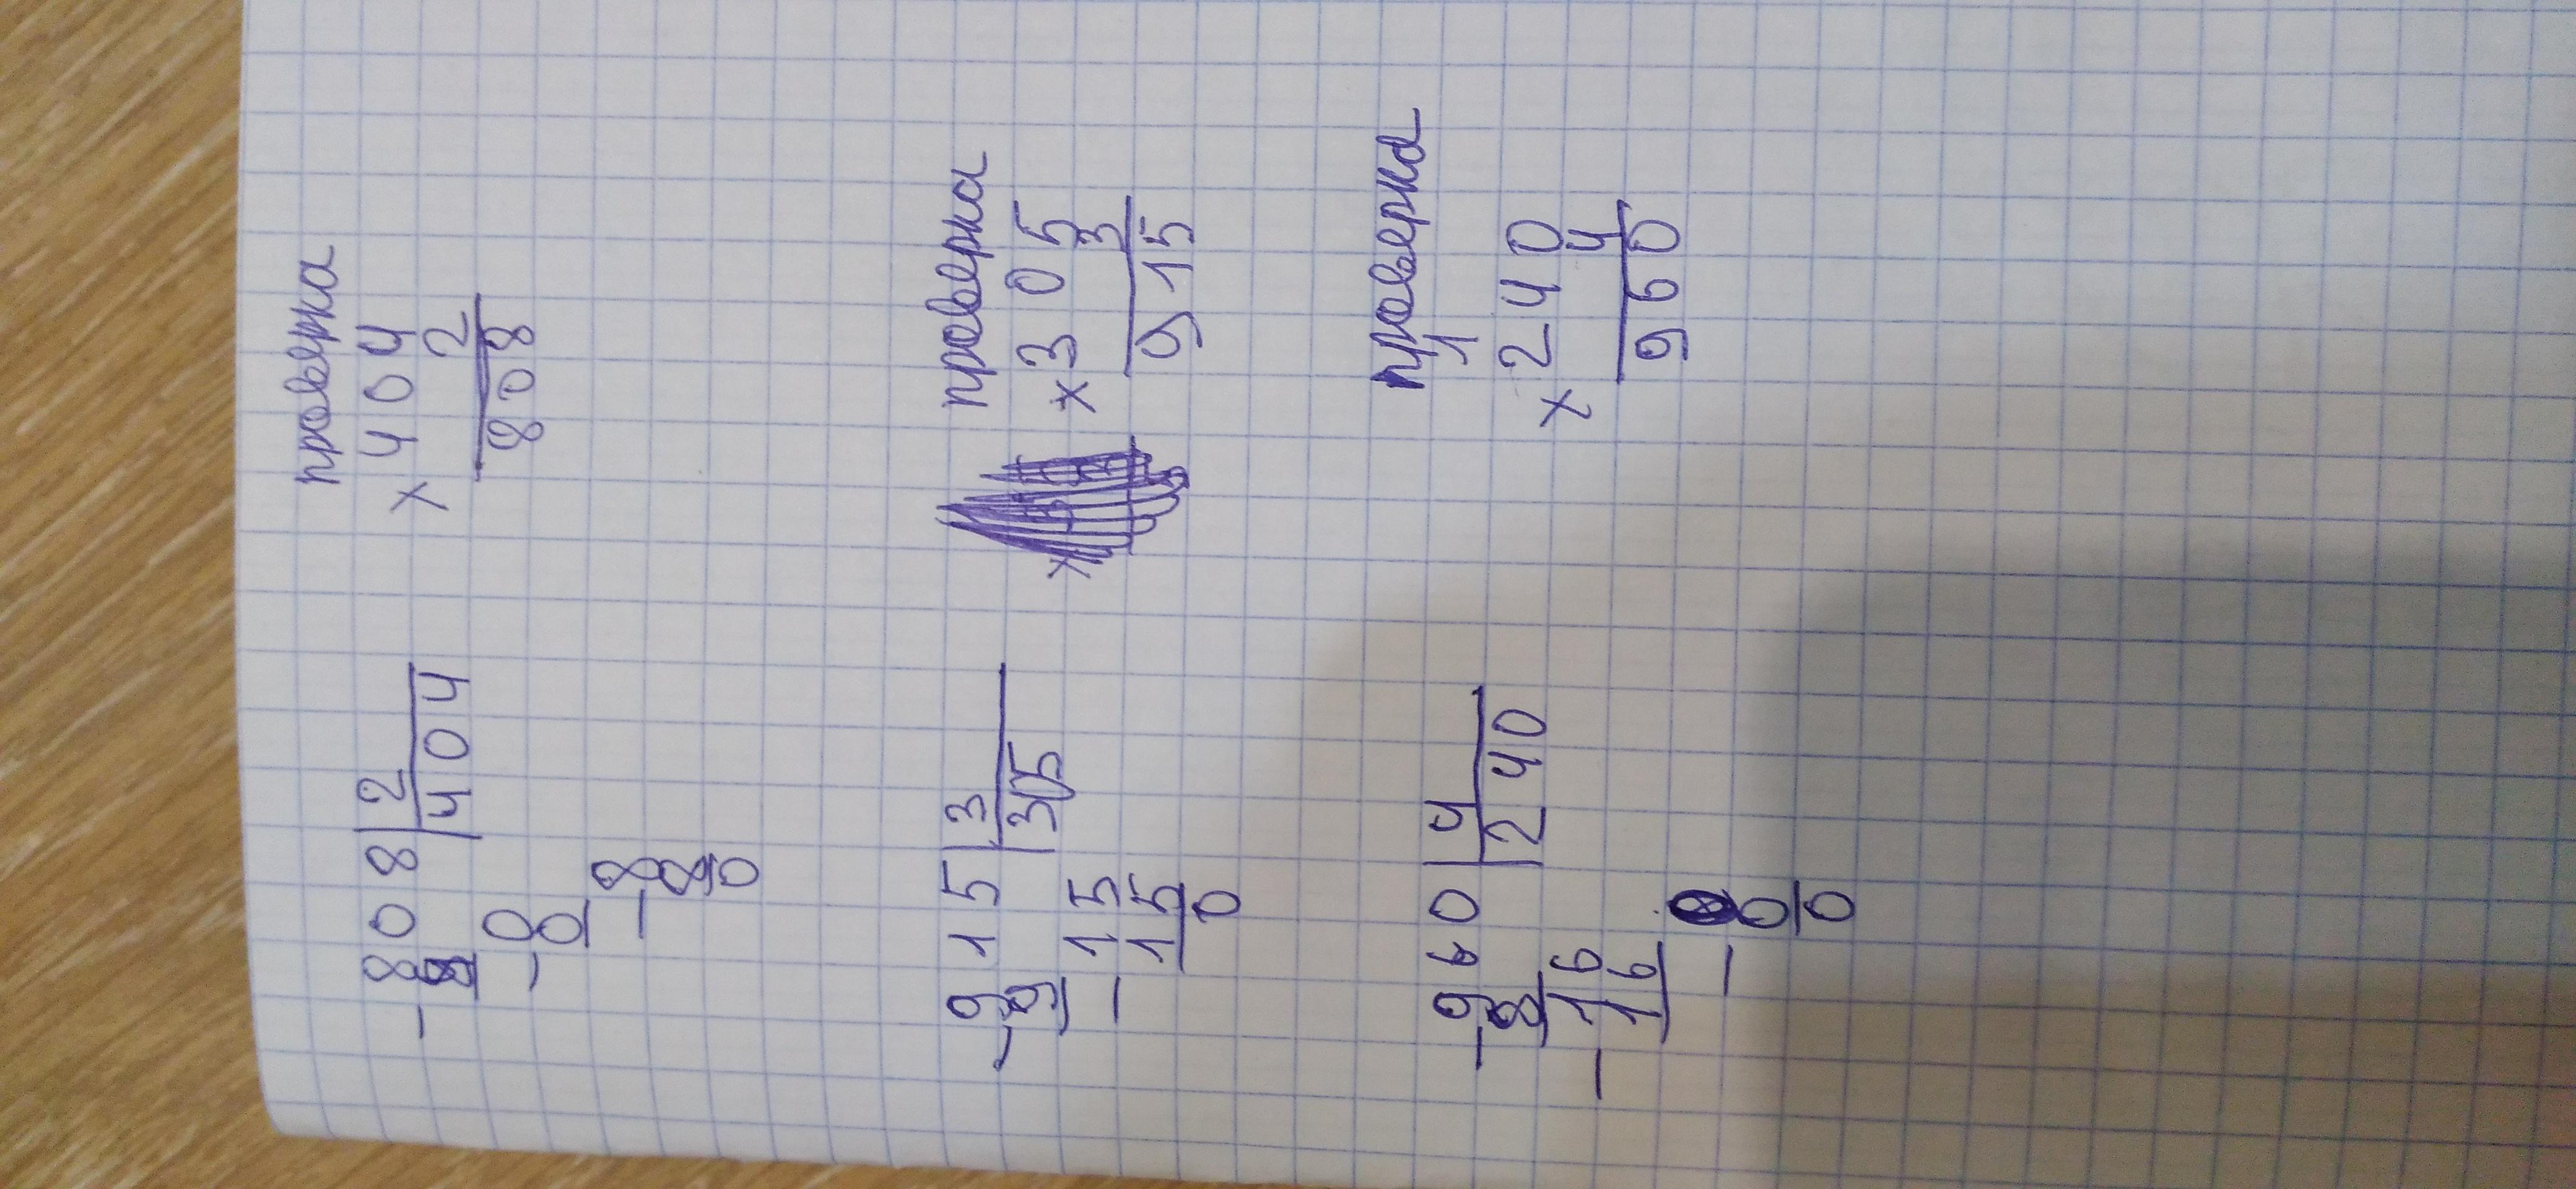 -808|2 проверка
8 404 ×404
-0 2
0 808
-8
8
0
-915|3 проверка
9 305 ×305
-15 3
15 915
0
-960|4 проверка
8 240 1
-16 ×240
16 4
-0 960
0
0